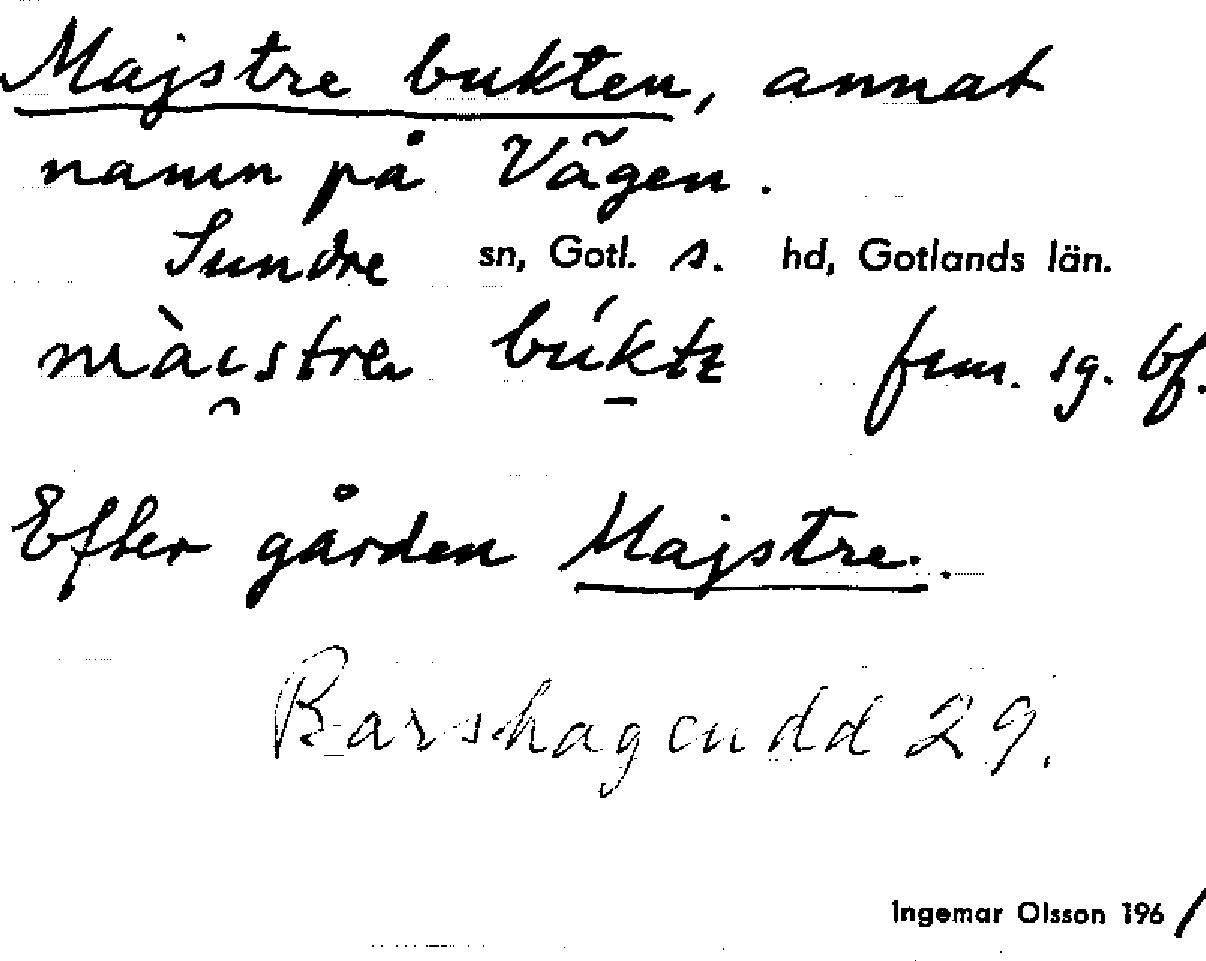 Majstre bukten, annat
namn på Vägen.
Sundre sn, Gotl. s. hd, Gotlands län.
fem. sg. bf.
Efter gården Majstre.
Barshageudd 29.
Ingemar Olsson 1961